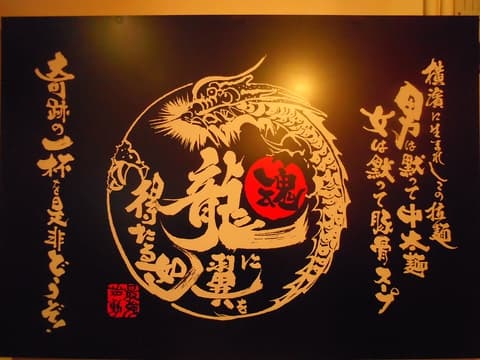 横濱に生まれしこの拉麺
男は黙って中太麺
女は黙って豚骨スープ
魂
龍に翼を
得たる如
奇跡の一杯を是非どうぞ!